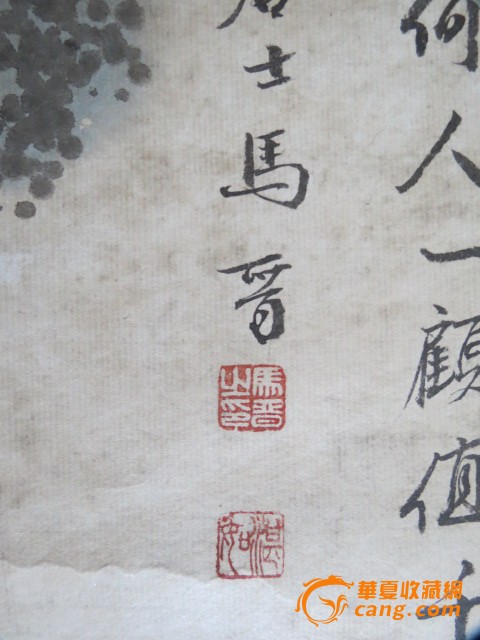 何人一顧值千
居士馬晉
馬晉之印
湛如
華夏收藏網
cang.com